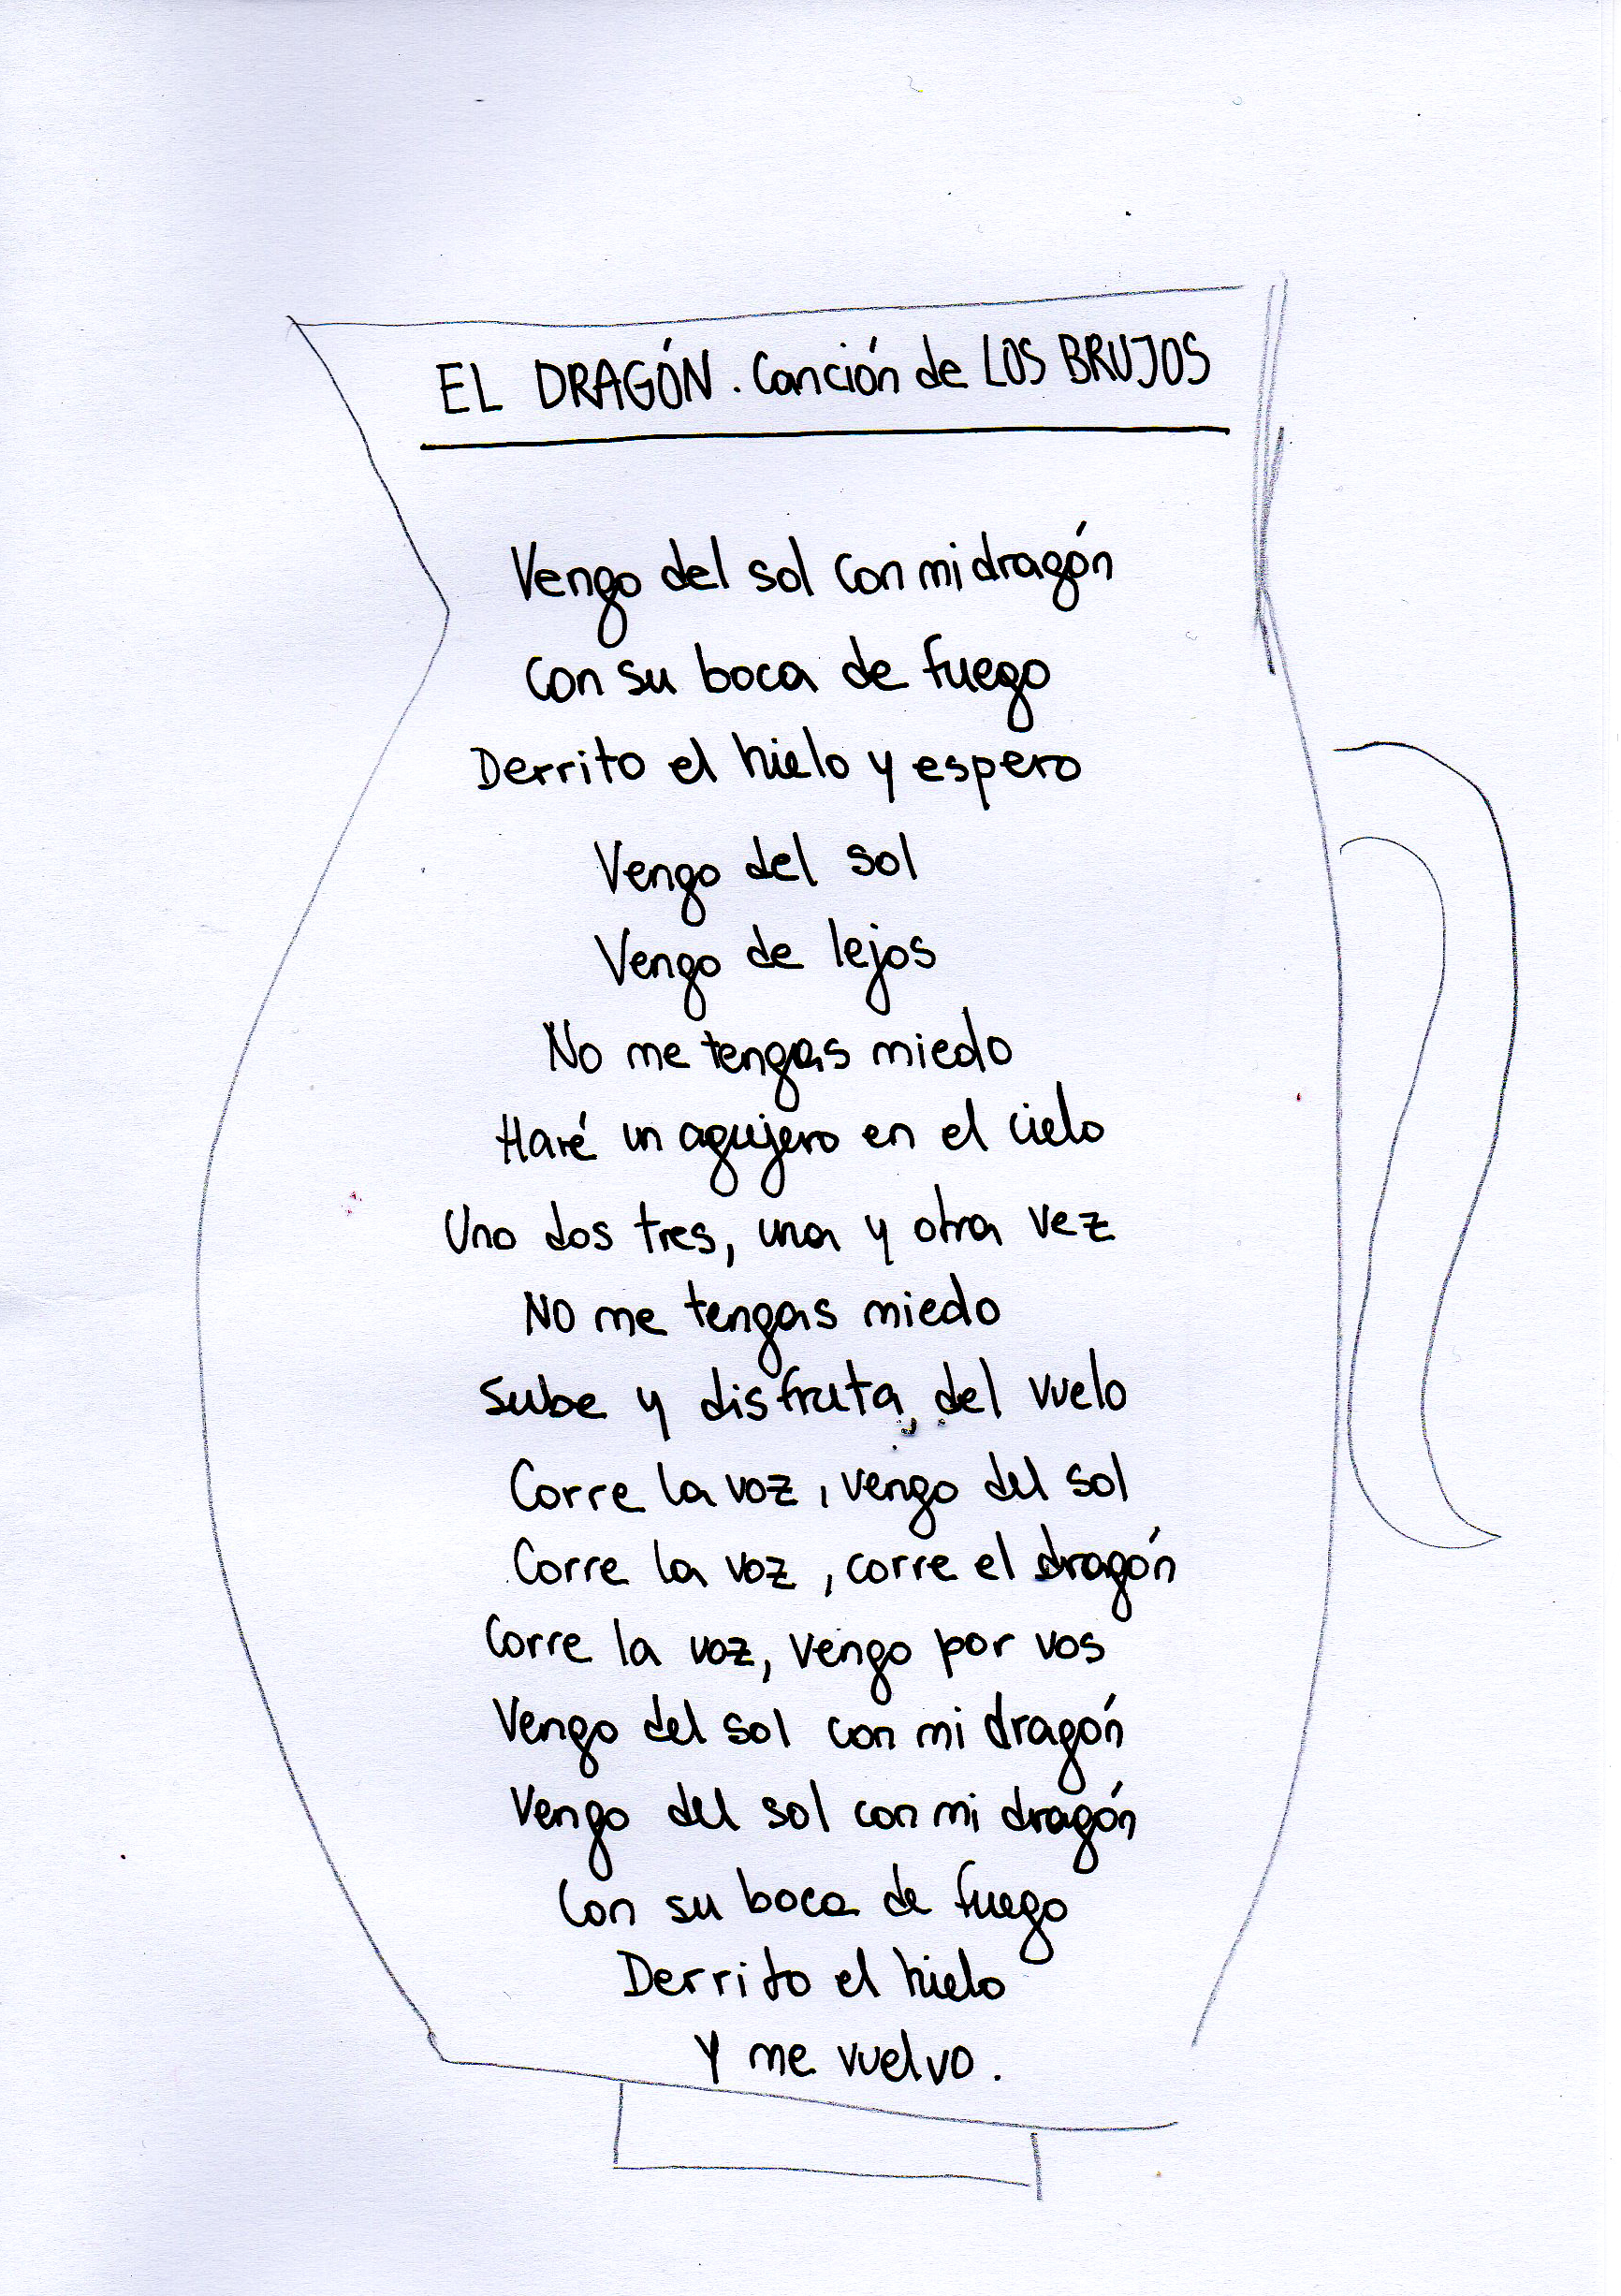 EL DRAGÓN. Canción de LOS BRUJOS
Vengo del sol con mi dragón
Con su boca de fuego
Derrito el hielo y espero
Vengo del sol
Vengo de lejos
No me tengas miedo
Haré un agujero en el cielo
Uno dos tres, una y otra vez
No me tengas miedo
Sube y disfruta del vuelo
Corre la voz, vengo del sol
Corre la voz, corre el dragón
Corre la voz, vengo por vos
Vengo del sol con mi dragón
Vengo del sol con mi dragón
Con su boca de fuego
Derrito el hielo
Y me vuelvo.